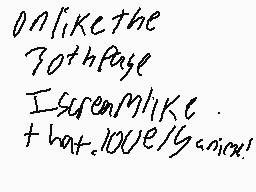 on like the
30th Page
I scream like
that. lOVElS anime!